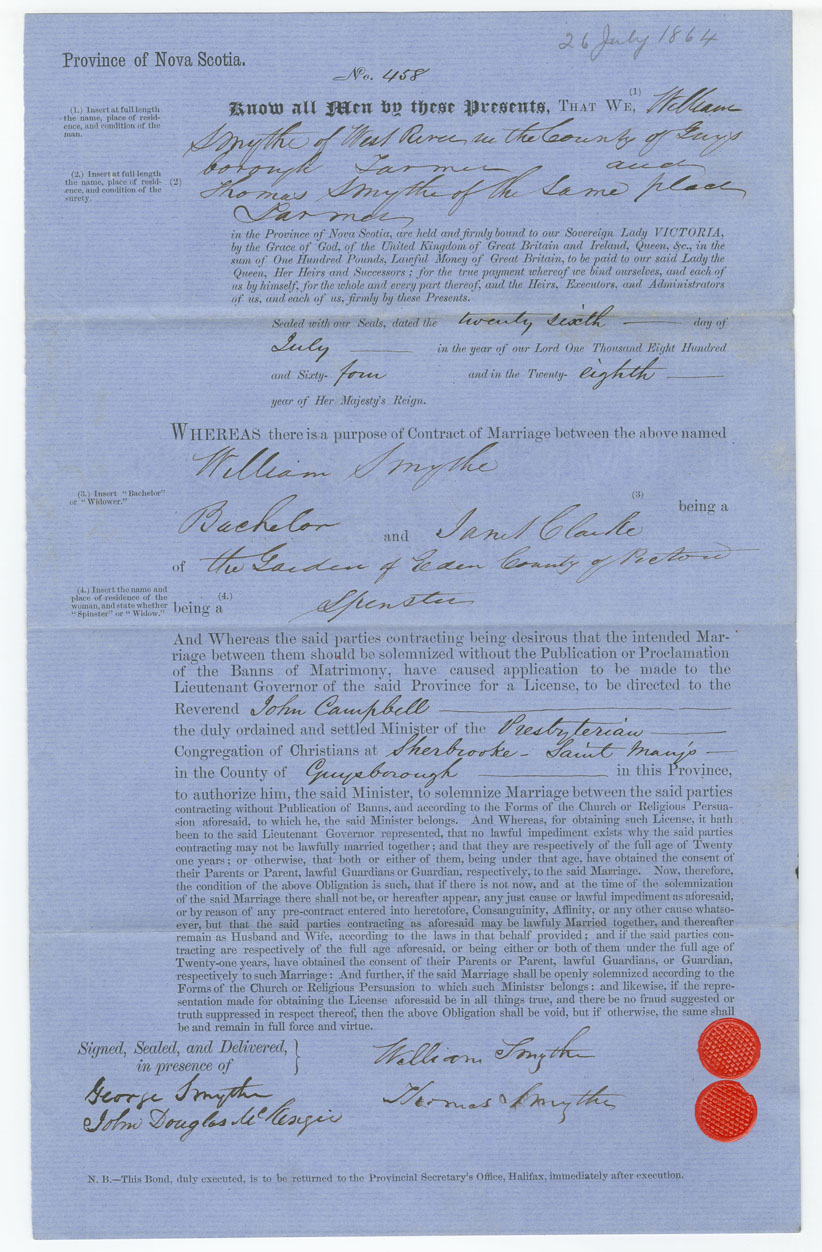 26 July 1864
Province of Nova Scotia.
No. 458
(1.) Insert at full length
the name, place of resid-
ence, and condition of the
man.
(1)
Know all Men by these Presents, THAT WE, William
Smythe of West River in the County of Guys
borough Farmer and
(2.) Insert at full length
the name, place of resid-
ence, and condition of the
surety.
(2) Thomas Smythe of the Same place
Farmer
in the Province of Nova Scotia, are held and firmly bound to our Sovereign Lady VICTORIA,
by the Grace of God, of the United Kingdom of Great Britain and Ireland, Queen, &c., in the
sum of One Hundred Pounds, Lawful Money of Great Britain, to be paid to our said Lady the
Queen, Her Heirs and Successors; for the true payment whereof we bind ourselves, and each of
us by himself, for the whole and every part thereof, and the Heirs, Executors, and Administrators
of us, and each of us, firmly by these Presents.
Sealed with our Seals, dated the twenty sixth day of
July in the year of our Lord One Thousand Eight Hundred
and Sixty- four and in the Twenty- eighth
year of Her Majesty's Reign.
WHEREAS there is a purpose of Contract of Marriage between the above named
William Smythe
(3.) Insert "Bachelor"
or "Widower."
(3) being a
Bachelor and Janet Clarke
of the Garden of Eden County of Pictou
(4.) Insert the name and
place of residence of the
woman, and state whether
"Spinster" or "Widow."
being a (4.) Spinster
And Whereas the said parties contracting being desirous that the intended Mar-
riage between them should be solemnized without the Publication or Proclamation
of the Banns of Matrimony, have caused application to be made to the
Lieutenant Governor of the said Province for a License, to be directed to the
Reverend John Campbell
the duly ordained and settled Minister of the Presbyterian
Congregation of Christians at Sherbrooke - Saint Mary's
in the County of Guysborough in this Province,
to authorize him, the said Minister, to solemnize Marriage between the said parties
contracting without Publication of Banns, and according to the Forms of the Church or Religious Persua-
sion aforesaid, to which he, the said Minister belongs. And Whereas, for obtaining such License, it hath
been to the said Lieutenant Governor represented, that no lawful impediment exists why the said parties
contracting may not be lawfully married together; and that they are respectively of the full age of Twenty
one years; or otherwise, that both or either of them, being under that age, have obtained the consent of
their Parents or Parent, lawful Guardians or Guardian, respectively, to the said Marriage. Now, therefore,
the condition of the above Obligation is such, that if there is not now, and at the time of the solemnization
of the said Marriage there shall not be, or hereafter appear, any just cause or lawful impediment as aforesaid,
or by reason of any pre-contract entered into heretofore, Consanguinity, Affinity, or any other cause whatso-
ever, but that the said parties contracting as aforesaid may be lawfuly Married together, and thereafter
remain as Husband and Wife, according to the laws in that behalf provided; and if the said parties con-
tracting are respectively of the full age aforesaid, or being either or both of them under the full age of
Twenty-one years, have obtained the consent of their Parents or Parent, lawful Guardians, or Guardian,
respectively to such Marriage: And further, if the said Marriage shall be openly solemnized according to the
Forms of the Church or Religious Persuasion to which such Ministsr belongs: and likewise, if the repre-
sentation made for obtaining the License aforesaid be in all things true, and there be no fraud suggested or
truth suppressed in respect thereof, then the above Obligation shall be void, but if otherwise, the same shall
be and remain in full force and virtue.
Signed, Sealed, and Delivered,
in presence of
William Smythe
George Smythe
Thomas Smythe
John Douglas McKenzie
N. B.—This Bond, duly executed, is to be returned to the Provincial Secretary's Office, Halifax, immediately after execution.